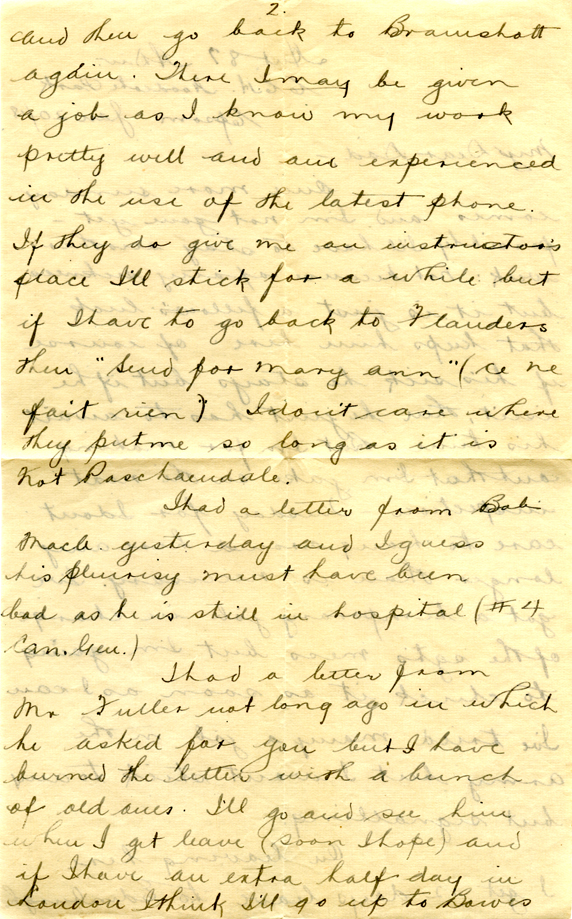 2.
and then go back to Bramshott
again. There I may be given
a job as I know my work
pretty well and am experienced
in the use of the latest phone.
If they do give me an instructor's
place I'll stick for a while but
if I have to go back to Flanders
then "Send for Mary Ann" (ce ne
fait rien") I don't care where
they put me so long as it is
not Paschaendale.
I had a letter from Bob
Mack. yesterday and I guess
his plurisy must have been
bad as he is still in hospital (#4
Can. Gen.)
I had a letter from
Mr Fuller not long ago in which
he asked for you but I have
burned the letter with a bunch
of old ones. I'll go and see him
when I get leave (soon I hope) and
if I have an extra half day in
London I think I'll go up to Bowes